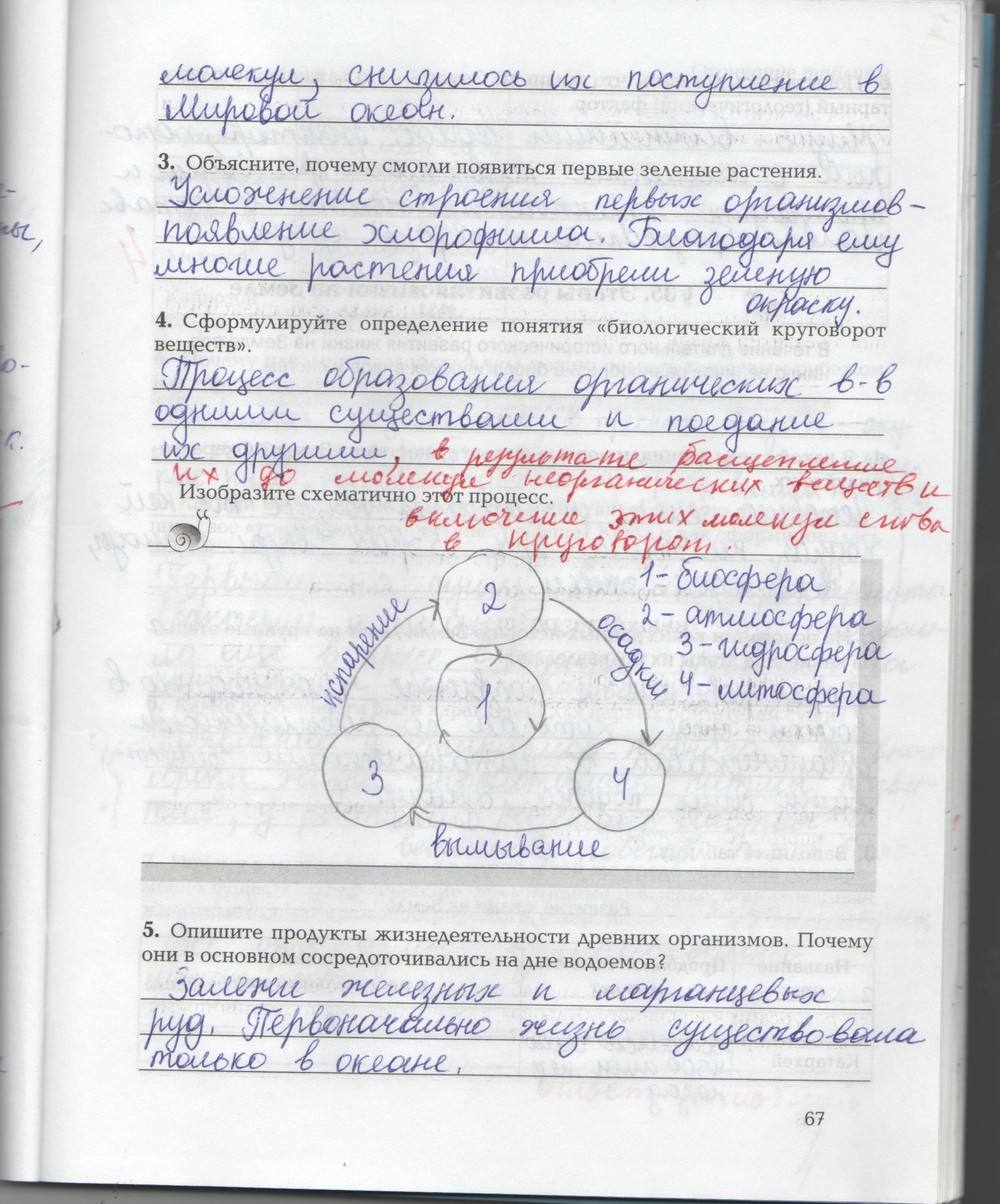 молекул, снизилось их поступление в
Мировой океан.
3. Объясните, почему смогли появиться первые зеленые растения.
Усложнение строения первых организмов-
появление хлорофилла. Благодаря ему
многие растения приобрели зеленую
окраску.
4. Сформулируйте определение понятия «биологический круговорот
веществ».
Процесс образования органических в-в
одними существами и поедание
их другими, в результате расщепление
их до молекул неорганических веществ и
Изобразите схематично этот процесс.
включение этих молекул снова
в круговорот.
2
1
3
4
испарение
осадки
вымывание
1- биосфера
2- атмосфера
3- гидросфера
4- литосфера
5. Опишите продукты жизнедеятельности древних организмов. Почему
они в основном сосредоточивались на дне водоемов?
Залежи железных и марганцевых
руд. Первоначально жизнь существовала
только в океане.
67